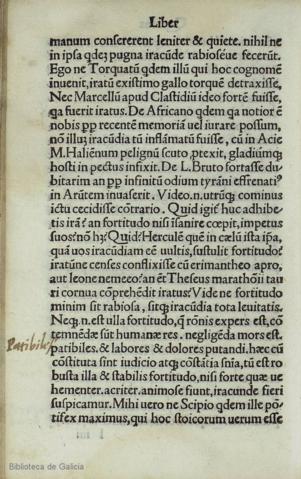 Liber
manum consererent leniter & quiete. nihil ne
in ipsa qdeȝ pugna iracūde rabioséue fecerūt.
Ego ne Torquatū qdem illū qui hoc cognomē
inuenit, iratū existimo gallo torquē detraxisse,
Nec Marcellū apud Clastidiū ideo fortē fuisse,
qa fuerit iratus. De Africano qdem qa notior ē
nobis ꝓꝑ recentē memoriā uel iurare possum,
nō illuȝ iracūdia tū inflāmatū fuisse, cū in Acie
M. Haliēnum pelignū scuto ꝓtexit, gladiūmqȝ
hosti in pectus infixit. De L. Bruto fortasse du-
bitarim an ꝓꝑ infinitū odium tyrāni effrenatiꝰ
in Arūtem inuaserit. Video. n. utrūqȝ cominus
ictu cecidisse cōtrario. Quid igit' huc adhibe-
tis irā? an fortitudo nisi īsanire cœpit, impetus
suos nō hȝ? Quid? Herculē quē in cœlū ista ip̄a,
quā uos iracūdiam eē uultis, sustulit fortitudo?
iratūne censes conflixisse cū erimantheo apro,
aut leone nemeeo? an ēt Theseus marathōii tau
ri cornua cōprehēdit iratus? Vide ne fortitudo
minim sit rabiosa, sitqȝ iracūdia tota leuitatis.
Neqȝ. n. est ulla fortitudo, q̄ rōnis expers est, cō
temnēdæ sūt humanæ res. negligēda mors est.
patibiles. & labores & dolores putandi. hæc cū
cōstituta sint iudicio atqȝ cōstātia sn̄ia, tū est ro
busta illa & stabilis fortitudo, nisi forte quæ ue
hementer. acriter. animose fiunt, iracunde fieri
suspicamur. Mihi uero ne Scipio qdem ille pō-
tifex maximus, qui hoc stoicorum uerum esse
Patibiles
Biblioteca de Galicia